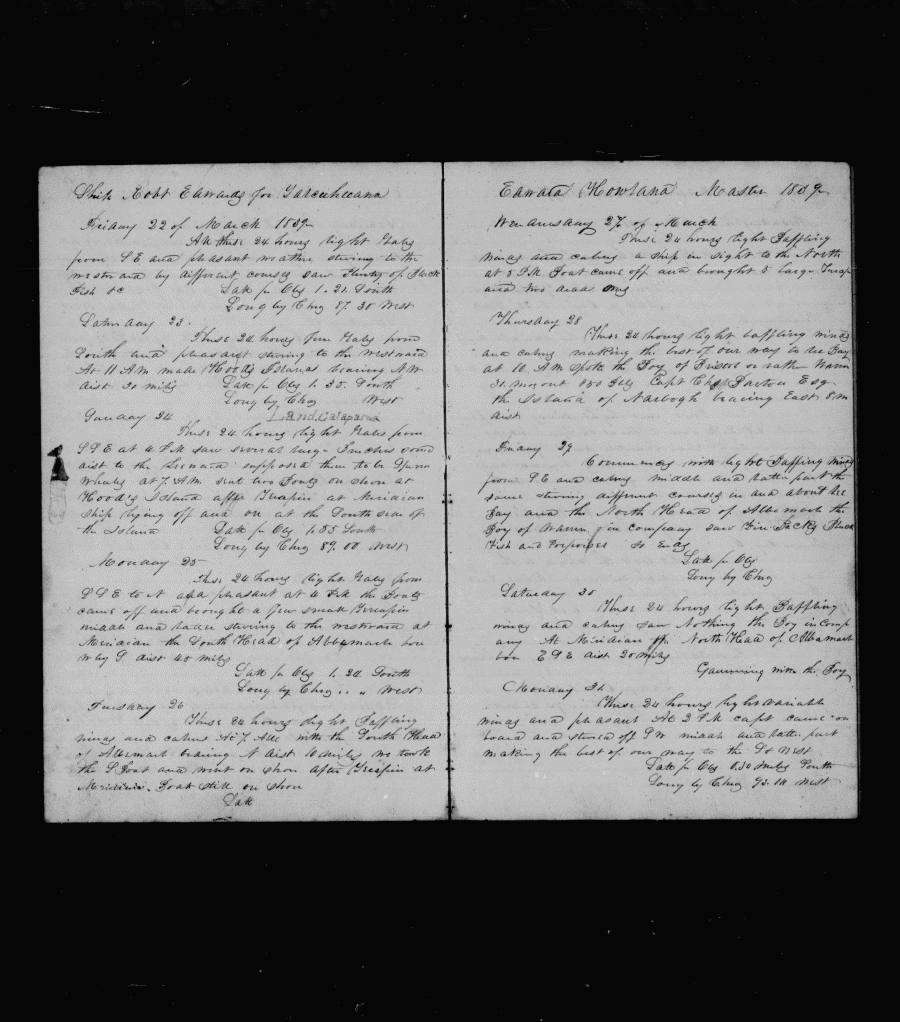 Ship Robt Edwards for Talcuhuana
Friday 22 of March 1839
All these 24 hours light Gales
from S E and pleasant weather steering to the
westward by different courses saw Plenty of Black
Fish &c Latt pr Obs 1.21 South
Long by Chro 87.30 West
Saturday 23.
These 24 hours fine Gales from
South and pleasant stering to the westward
At 11 AM made Hoods Island bearing N W
dist 30 miles Latt pr Obs 1.35. South
Long by Chro West
Sunday 24 Land, Galapagos
These 24 hours light Gales from
S S E at 4 P.M saw several large Finches some
dist to the Leeward supposed them to be Sperm
Whales at 7 A.M. sent two Boats on shore at
Hood's Island after Turapin at Meridian
Ship lying off and on at the South side of
the Island Latt pr Obs 1.35 South
Long by Chro 89.00 West
Monday 25
These 24 hours light Gales from
S S E to and pleasant at 4 P.M the Boats
came off and brought a few small Terrapin
middle and latter stering to the westward at
Meridian the South Head of Albemarle bore
W by S dist 40 miles
Latt pr Obs 1.24 South
Long by Chro .. " West
Tuesday 26
These 24 hours light Baffling
winds and calms At 7 AM with the South Head
of Albemarl bearing N dist 10 miles we took
the Boat and went on shore after Terapin at
Meridian. Boat still on shore
Latt
Edward Howland Master 1839
Wednesday 27 of March
These 24 hours light Baffling
winds and calms a ship in sight to the North
at 5 P.M Boat came off and brought 5 large Turap
and two dead ones
Thursday 28
These 24 hours light baffling winds
and calms making the best of our way to the Bay
at 10 AM spoke the Boy of or rather Warren
31 mos out 850 Bbls Capt Chs Barton Esq
the Island of Narbogh bearing East 8 m
dist
Friday 29
Commences with light Baffling winds
from S E and calms middle and latter part the
same stering different courses in and about the
Bay and the North Head of Albemarle the
Boy of Warren in company saw Fin Backs Black
Fish and Porpoises So Ends
Latt pr Obs
Long by Chro
Saturday 30
These 24 hours light Baffling
winds and calms saw Nothing the Boy in Comp
any At Meridian the North Head of Albamarle
bore E S E dist 20 miles
Gamming with the Boy
Monday 31
These 24 hours light variable
winds and pleasant At 2 P.M capt came on
board and steered off S W middle and latter part
making the best of our way to the So West
Latt pr Obs 0.30 miles South
Long by Chro 93.10 West